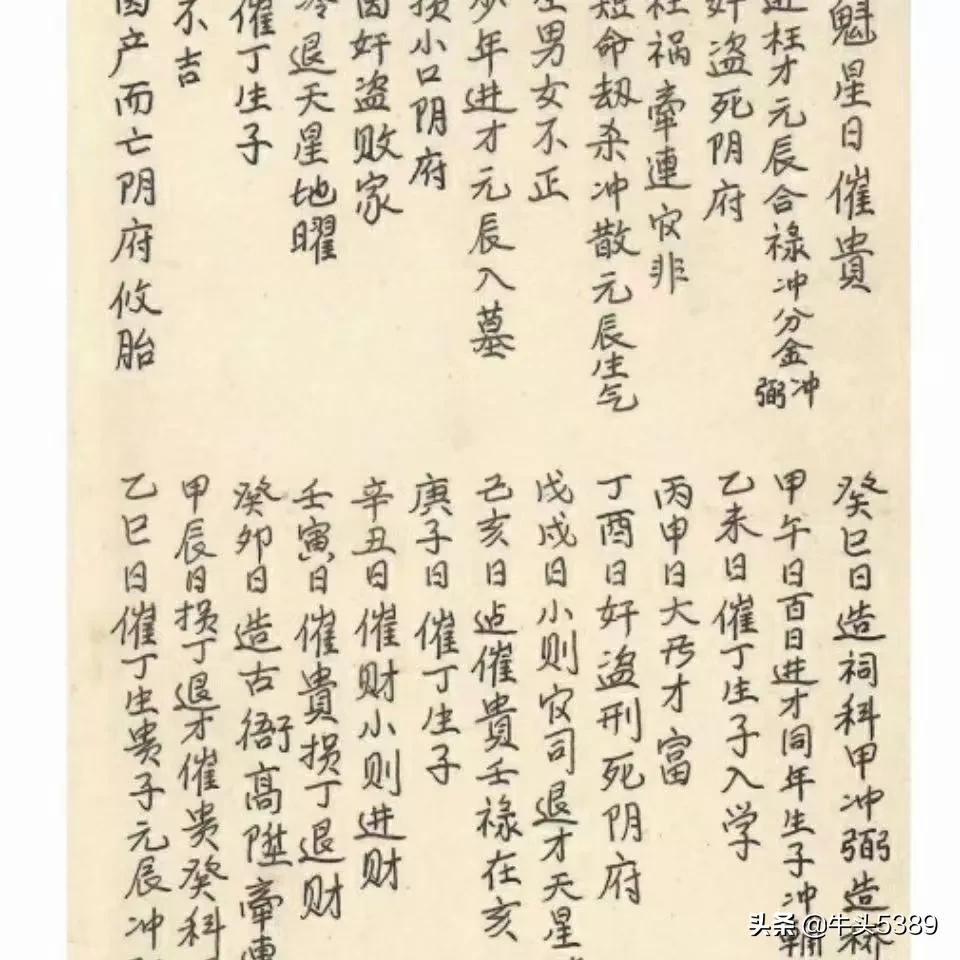 魁星日催貴
进枉才元辰合禄冲分金冲弼
奸盗死阴府
祸牵連官非
短命劫杀冲散元辰生气
男女不正
少年进才元辰入墓
损小口阴府
因奸盗败家
冷退天星地曜
催丁生子
不吉
因产而亡阴府攸胎
癸巳日造祠科甲冲弼造桥
甲午日百日进才同年生子冲輔
乙未日催丁生子入学
丙申日大发才富
丁酉日奸盗刑死阴府
戊戌日小则官司退才天星
己亥日造催貴壬禄在亥
庚子日催丁生子
辛丑日催财小则进财
壬寅日催貴损丁退财
癸卯日造古衙高陞牵連
甲辰日损丁退才催贵癸科
乙巳日催丁生贵子元辰冲
头条 @牛头5389